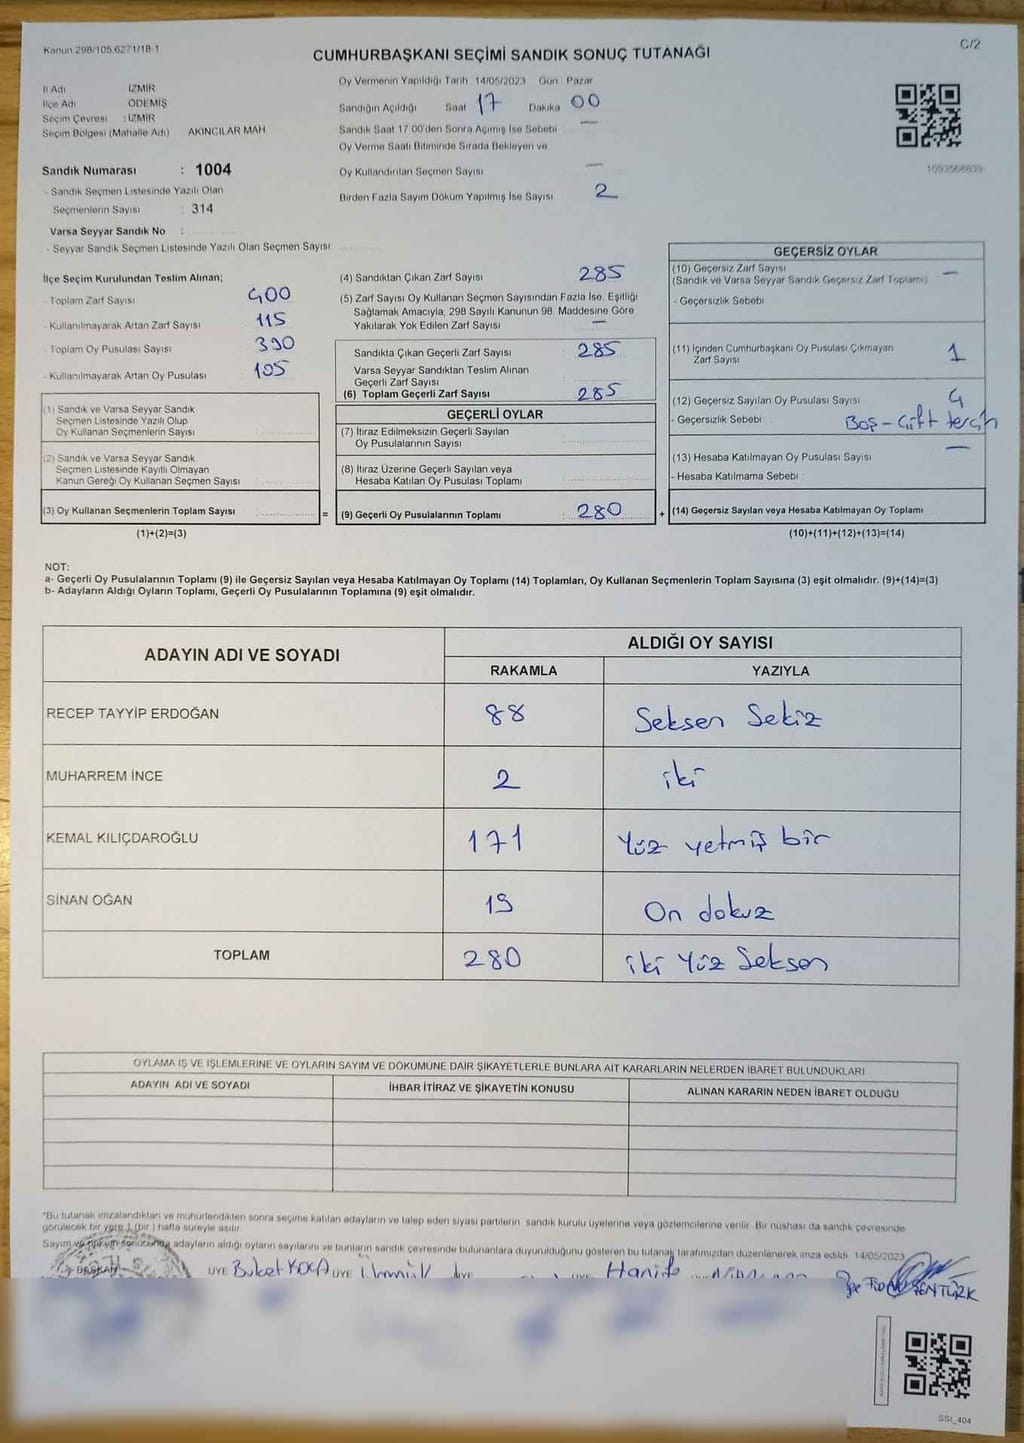 Kanun 298/105,6271/18-1
C/2
CUMHURBAŞKANI SEÇİMİ SANDIK SONUÇ TUTANAĞI
İl Adı İZMİR
İlçe Adı ÖDEMİŞ
Seçim Çevresi : İZMİR
Seçim Bölgesi (Mahalle Adı) AKINCILAR MAH
Oy Vermenin Yapıldığı Tarih 14/05/2023 Gün Pazar
Sandığın Açıldığı Saat 17 Dakika 00
Sandık Saat 17 00'den Sonra Açımış İse Sebebi —
Oy Verme Saati Bitiminde Sırada Bekleyen ve
Oy Kullandırılan Seçmen Sayısı —
Birden Fazla Sayım Döküm Yapılmış İse Sayısı 2
1093568839
Sandık Numarası : 1004
- Sandık Seçmen Listesinde Yazılı Olan
Seçmenlerin Sayısı : 314
Varsa Seyyar Sandık No :
- Seyyar Sandık Seçmen Listesinde Yazılı Olan Seçmen Sayısı
İlçe Seçim Kurulundan Teslim Alınan;
- Toplam Zarf Sayısı 400
- Kullanılmayarak Artan Zarf Sayısı 115
- Toplam Oy Pusulası Sayısı 390
- Kullanılmayarak Artan Oy Pusulası 105
(1) Sandık ve Varsa Seyyar Sandık
Seçmen Listesinde Yazılı Olup
Oy Kullanan Seçmenlerin Sayısı
(2) Sandık ve Varsa Seyyar Sandık
Seçmen Listesinde Kayıtlı Olmayan
Kanun Gereği Oy Kullanan Seçmen Sayısı
(3) Oy Kullanan Seçmenlerin Toplam Sayısı =
(1)+(2)=(3)
(4) Sandıktan Çıkan Zarf Sayısı 285
(5) Zarf Sayısı Oy Kullanan Seçmen Sayısından Fazla İse, Eşitliği
Sağlamak Amacıyla, 298 Sayılı Kanunun 98. Maddesine Göre
Yakılarak Yok Edilen Zarf Sayısı —
Sandıkta Çıkan Geçerli Zarf Sayısı 285
Varsa Seyyar Sandıktan Teslim Alınan
Geçerli Zarf Sayısı
(6) Toplam Geçerli Zarf Sayısı 285
GEÇERLİ OYLAR
(7) İtiraz Edilmeksizin Geçerli Sayılan
Oy Pusulalarının Sayısı
(8) İtiraz Üzerine Geçerli Sayılan veya
Hesaba Katılan Oy Pusulası Toplamı
(9) Geçerli Oy Pusulalarının Toplamı : 280 +
GEÇERSİZ OYLAR
(10) Geçersiz Zarf Sayısı
(Sandık ve Varsa Seyyar Sandık Geçersiz Zarf Toplamı) —
- Geçersizlik Sebebi
(11) İçinden Cumhurbaşkanı Oy Pusulası Çıkmayan
Zarf Sayısı 1
(12) Geçersiz Sayılan Oy Pusulası Sayısı 4
- Geçersizlik Sebebi Boş - Çift tercih
(13) Hesaba Katılmayan Oy Pusulası Sayısı —
- Hesaba Katılmama Sebebi
(14) Geçersiz Sayılan veya Hesaba Katılmayan Oy Toplamı
(10)+(11)+(12)+(13)=(14)
NOT:
a- Geçerli Oy Pusulalarının Toplamı (9) ile Geçersiz Sayılan veya Hesaba Katılmayan Oy Toplamı (14) Toplamları, Oy Kullanan Seçmenlerin Toplam Sayısına (3) eşit olmalıdır. (9)+(14)=(3)
b- Adayların Aldığı Oyların Toplamı, Geçerli Oy Pusulalarının Toplamına (9) eşit olmalıdır.
ADAYIN ADI VE SOYADI ALDIĞI OY SAYISI
RAKAMLA YAZIYLA
RECEP TAYYİP ERDOĞAN 88 Seksen Sekiz
MUHARREM İNCE 2 iki
KEMAL KILIÇDAROĞLU 171 Yüz yetmiş bir
SİNAN OĞAN 19 On dokuz
TOPLAM 280 iki Yüz Seksen
OYLAMA İŞ VE İŞLEMLERİNE VE OYLARIN SAYIM VE DÖKÜMÜNE DAİR ŞİKAYETLERLE BUNLARA AİT KARARLARIN NELERDEN İBARET BULUNDUKLARI
ADAYIN ADI VE SOYADI İHBAR İTİRAZ VE ŞİKAYETİN KONUSU ALINAN KARARIN NEDEN İBARET OLDUĞU
*Bu tutanak imzalandıktan ve mühürlendikten sonra seçime katılan adayların ve talep eden siyasi partilerin sandık kurulu üyelerine veya gözlemcilerine verilir. Bir nüshası da sandık çevresinde
görülecek bir yere 1 (bir ) hafta süreyle asılır
Sayım ve döküm sonucunda adayların aldığı oyların sayılarını ve bunların sandık çevresinde bulunanlara duyurulduğunu gösteren bu tutanak tarafımızdan düzenlenerek imza edildi. 14/05/2023
BAŞKAN ÜYE Buket KOCA ÜYE ÜYE ÜYE Hanife
ŞENTÜRK
SSI_404